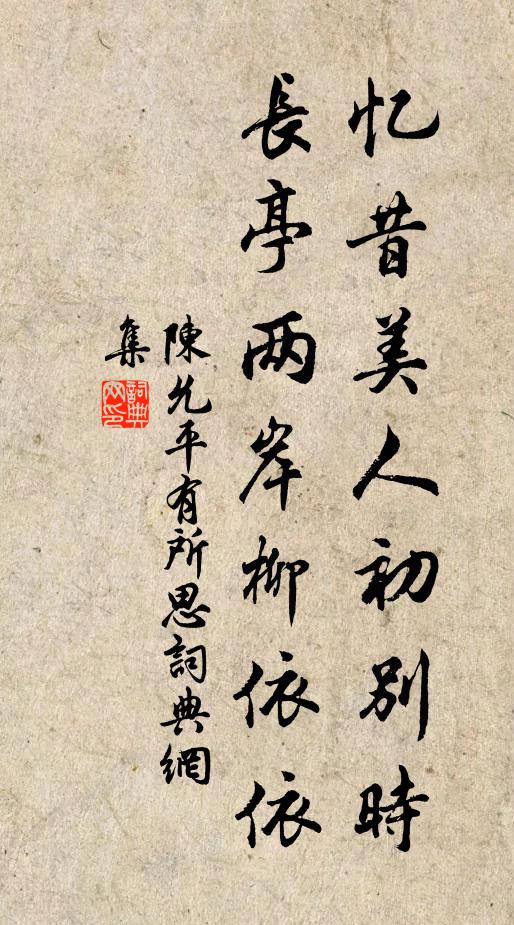 忆昔美人初别時
長亭两岸柳依依
陳允平有所思詞典網
集
詞典網印